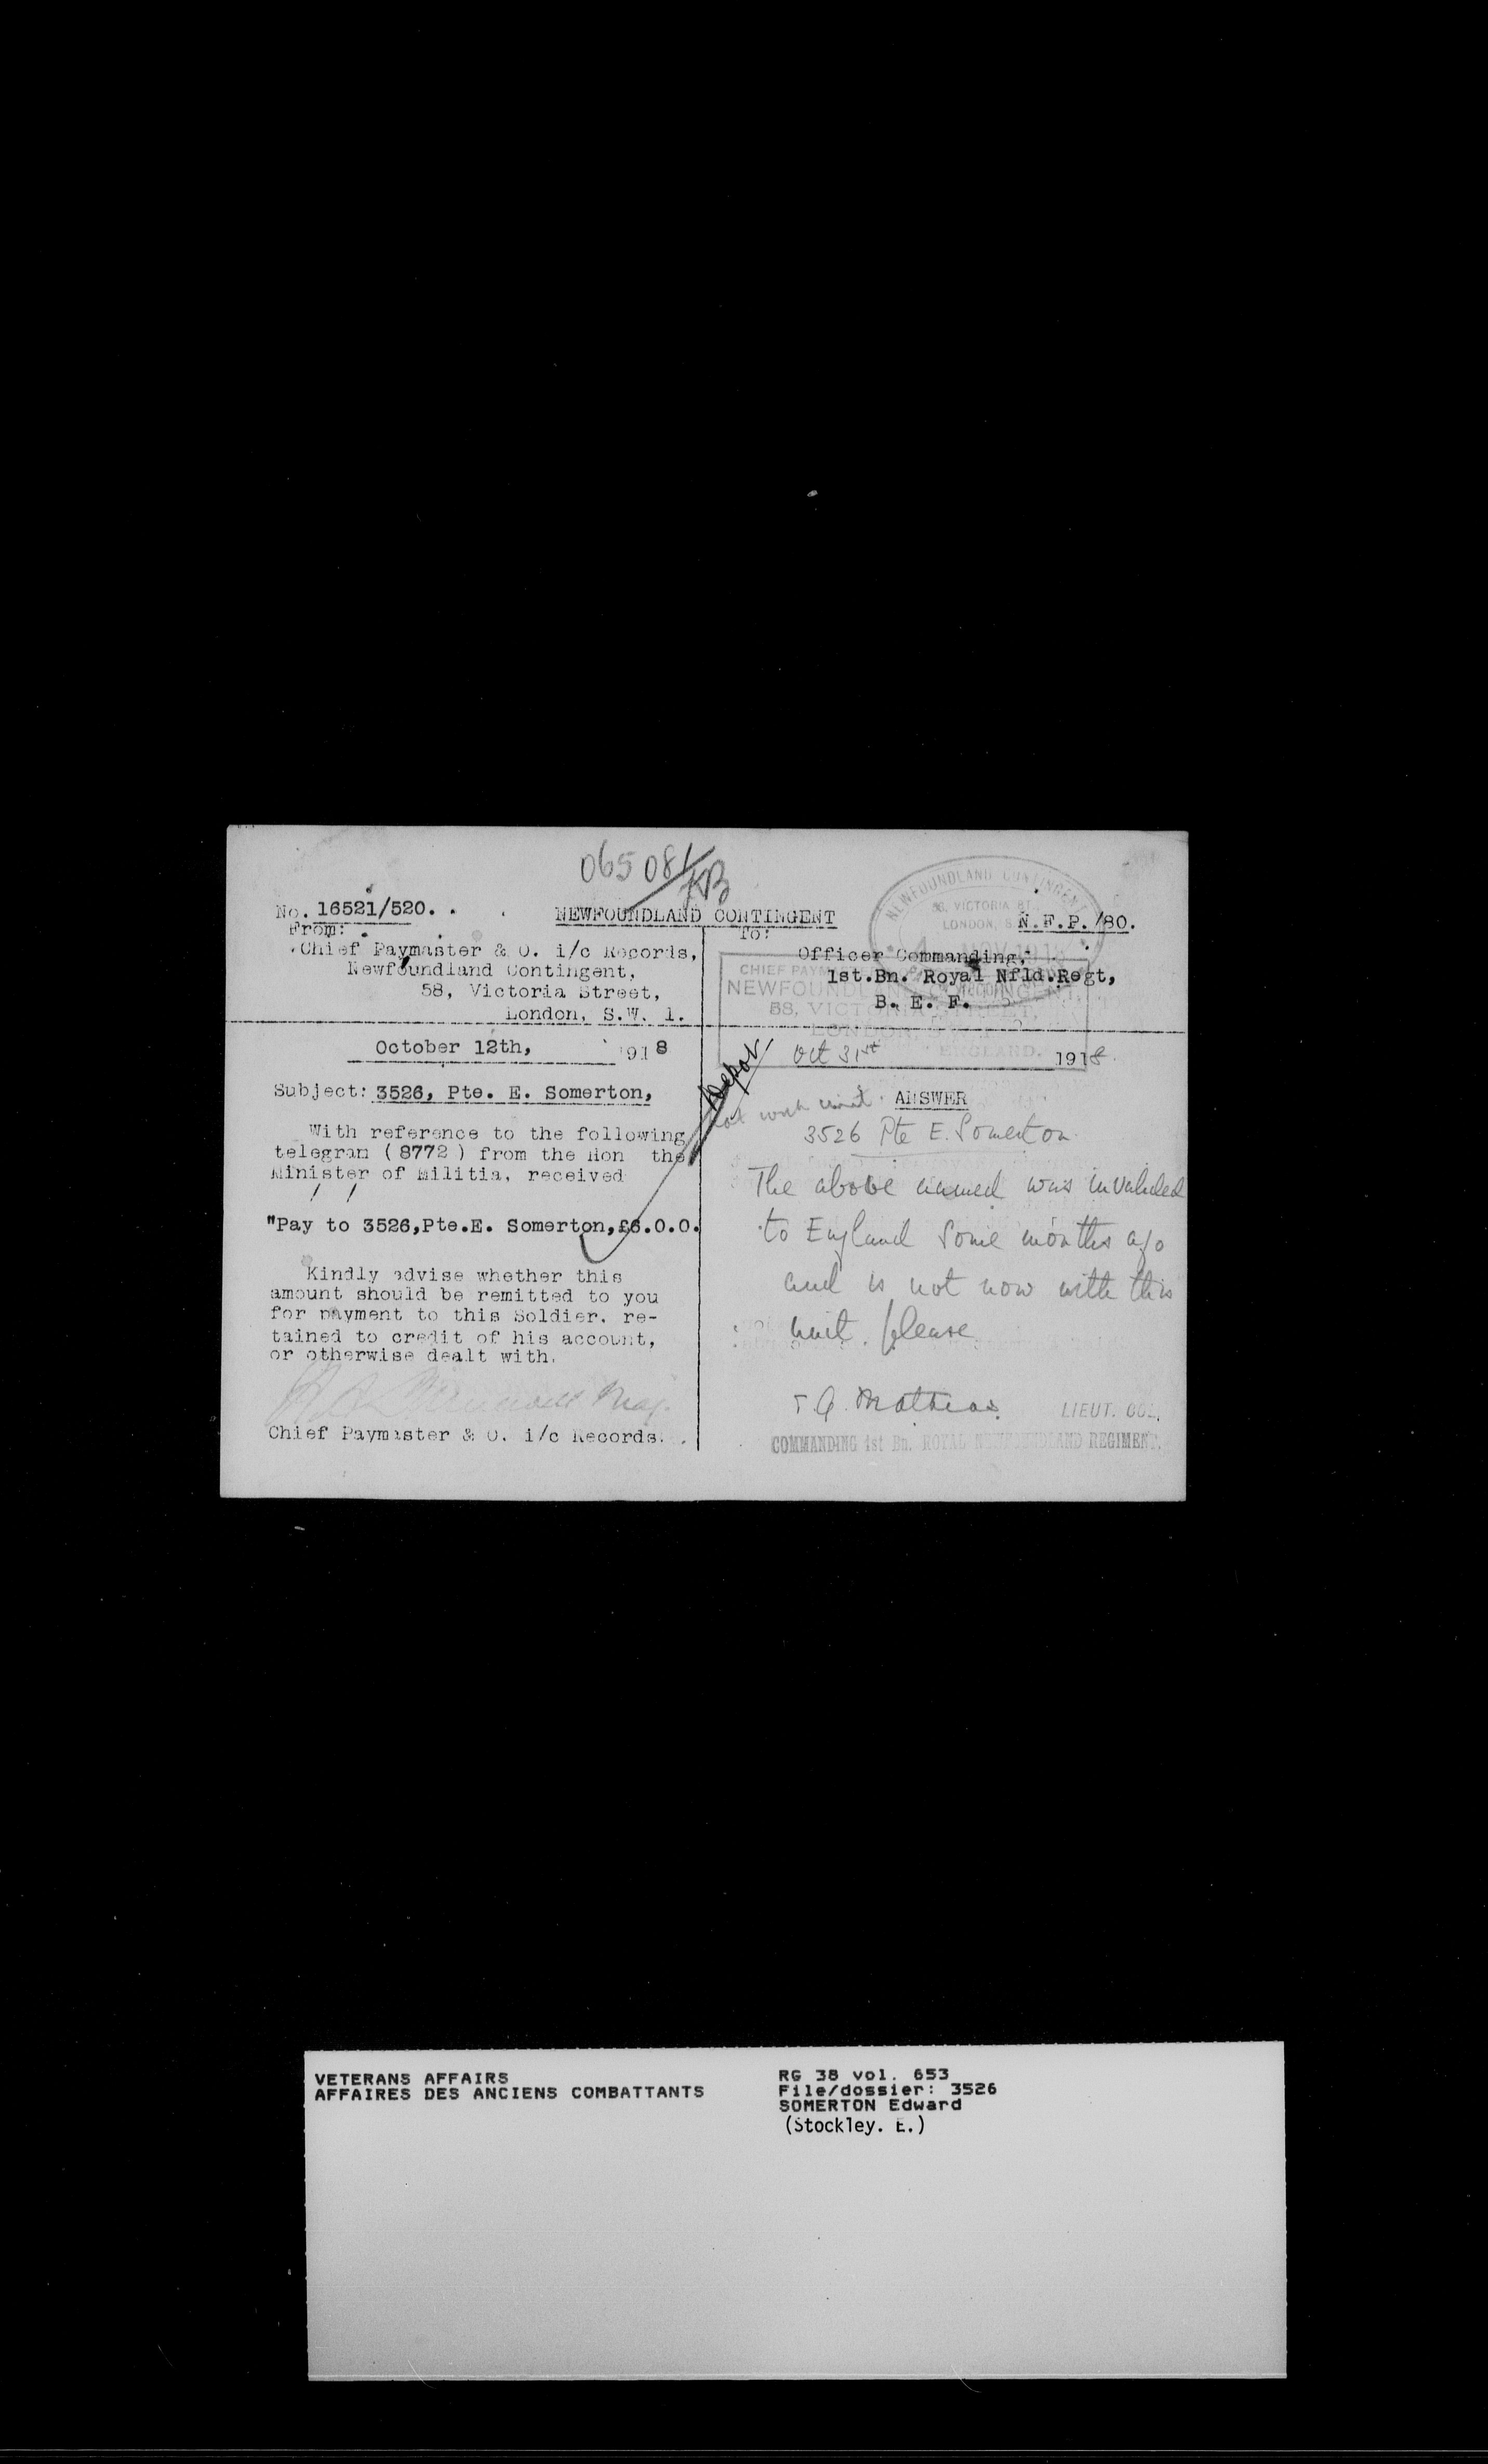 065081/KB
No. 16521/520. .
NEWFOUNDLAND CONTINGENT
N.F.P./80.
From:
Chief Paymaster & O. i/c Records,
Newfoundland Contingent,
58, Victoria Street,
London, S.W. 1.
To:
Officer Commanding,
1st.Bn. Royal Nfld.Regt,
B. E. F.
NEWFOUNDLAND CONTINGENT
58, VICTORIA ST.,
LONDON, S
NOV 1918
CHIEF PAYM
NEWFOUNDLAND CONTINGENT,
58, VICTORIA STREET,
LONDON, S
ENGLAND.
October 12th, 1918
Subject: 3526, Pte. E. Somerton,
With reference to the following
telegram (8772) from the Hon the
Minister of Militia, received
"Pay to 3526,Pte.E. Somerton,£6.0.0.
Kindly advise whether this
amount should be remitted to you
for payment to this Soldier. re-
tained to credit of his account,
or otherwise dealt with.
Maj.
Chief Paymaster & O. i/c Records.
Depot
Oct 31st 1918
not with unit. ANSWER
3526 Pte E. Somerton
The above named was invalided
to England some months ago
and is not now with this
unit. please
T.G. Mathias. LIEUT. COL.
COMMANDING 1st Bn. ROYAL NEWFOUNDLAND REGIMENT.
VETERANS AFFAIRS
AFFAIRES DES ANCIENS COMBATTANTS
RG 38 vol. 653
File/dossier: 3526
SOMERTON Edward
(Stockley. E.)